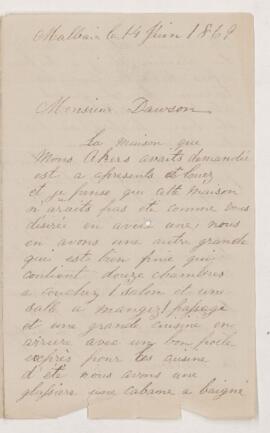 Malbaie le 14 Juin 1869
Monsieur Dawson
La maison que
Mons Akers avaits demandée
est a apresents louez
et je pense que cette maison
n'araits pas ete comme vous
desirée en avoir une, nous
en avons une autre grande
qui est bien finie qui
contient douze chambres
a coucher 1 salon et une
salle a mangez 1 passage
et une grande cuisine en
arriere avec un bon poele
exprès pour les cuisine
d'été nous avons une
plusiers une cabane a baigné